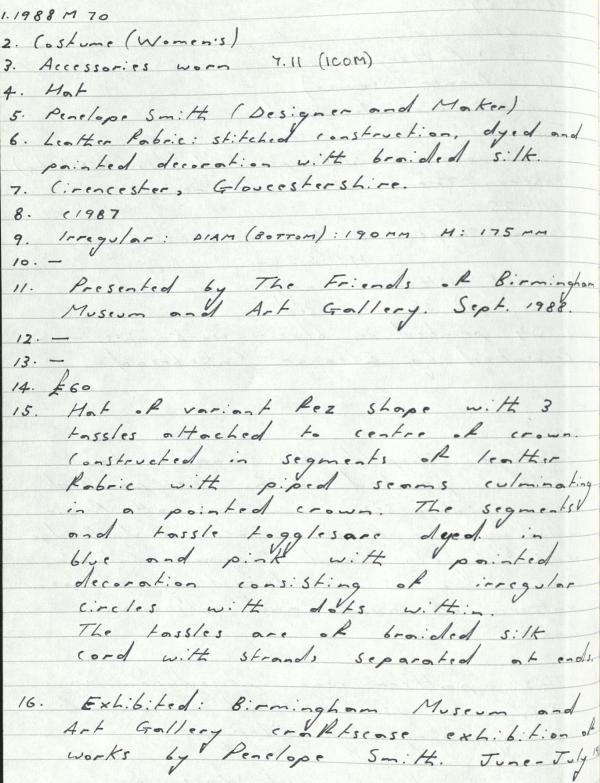 1. 1988 M 70
2. Costume (Women's)
3. Accessories worn 7.11 (ICOM)
4. Hat
5. Penelope Smith (Designer and Maker)
6. Leather Fabric: stitched construction, dyed and
painted decoration with braided silk.
7. Cirencester, Gloucestershire.
8. c1987
9. Irregular: DIAM (BOTTOM): 190 MM H: 175 MM
10. —
11. Presented by The Friends of Birmingham
Museum and Art Gallery. Sept. 1988.
12. —
13. —
14. £60
15. Hat of variant fez shape with 3
tassles attached to centre of crown.
Constructed in segments of leather
fabric with piped seams culminating
in a pointed crown. The segments
and tassle toggles are dyed in
blue and pink with painted
decoration consisting of irregular
circles with dots within.
The tassles are of braided silk
cord with strands separated at ends.
16. Exhibited: Birmingham Museum and
Art Gallery craftscase exhibition of
works by Penelope Smith. June-July